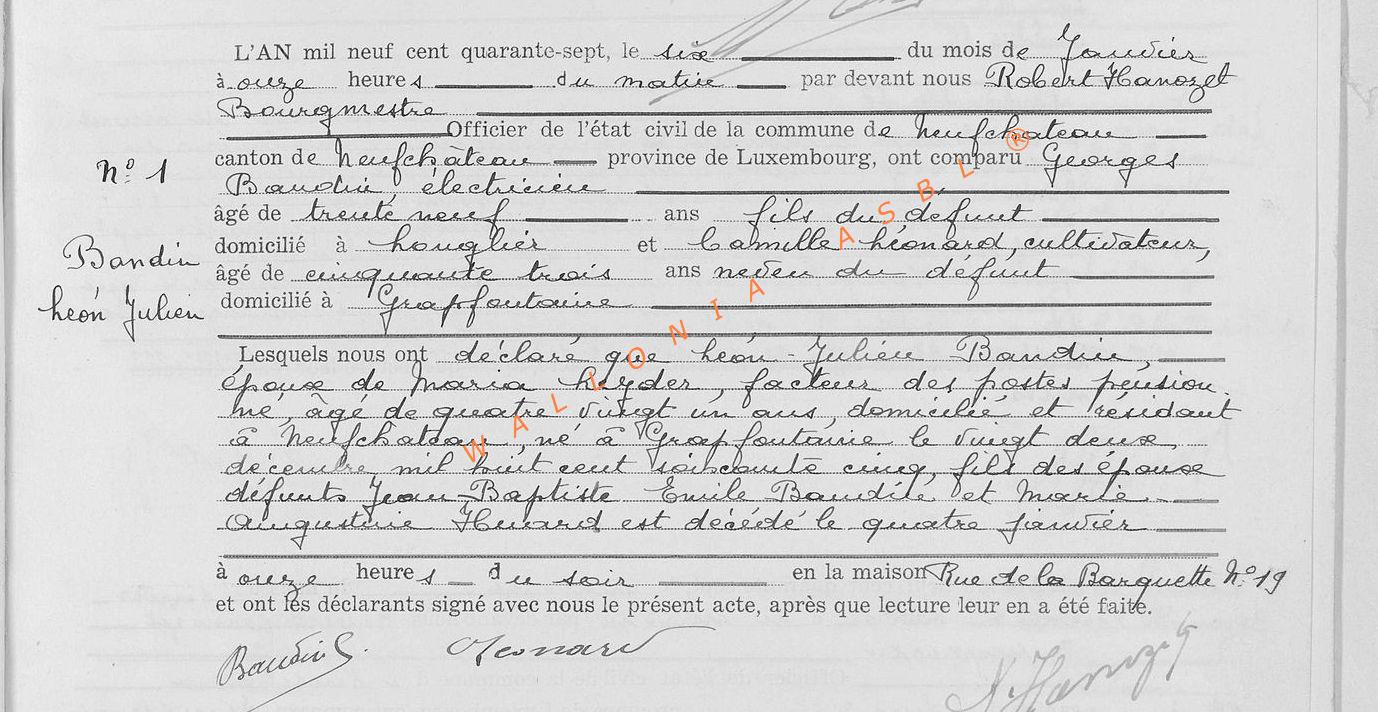 L'AN mil neuf cent quarante-sept, le six du mois de Janvier
à onze heures du matin par devant nous Robert Hanozet
Bourgmestre
Officier de l'état civil de la commune de Neufchateau
N° 1
canton de Neufchâteau province de Luxembourg, ont comparu Georges
Baudin, électricien
âgé de trente neuf ans fils du défunt
domicilié à Longlier et Camille Léonard, cultivateur,
Baudin
âgé de cinquante trois ans neveu du défunt
Léon Julien
domicilié à Grapfontaine
Lesquels nous ont déclaré que Léon-Julien Baudin,
époux de Maria, facteur des postes pension
né, âgé de quatre vingt un ans, domicilié et résidant
à Neufchateau, né à Grapfontaine le vingt deux
décembre mil huit cent soixante cinq, fils des époux
défunts Jean-Baptiste Emile Baudin et Marie
Augustine est décédé le quatre janvier
à onze heures du soir en la maison Rue de la Barquette N° 19
et ont les déclarants signé avec nous le présent acte, après que lecture leur en a été faite.
Baudin G. Leonard R. Hanozet
WALLONIA ASBL ®